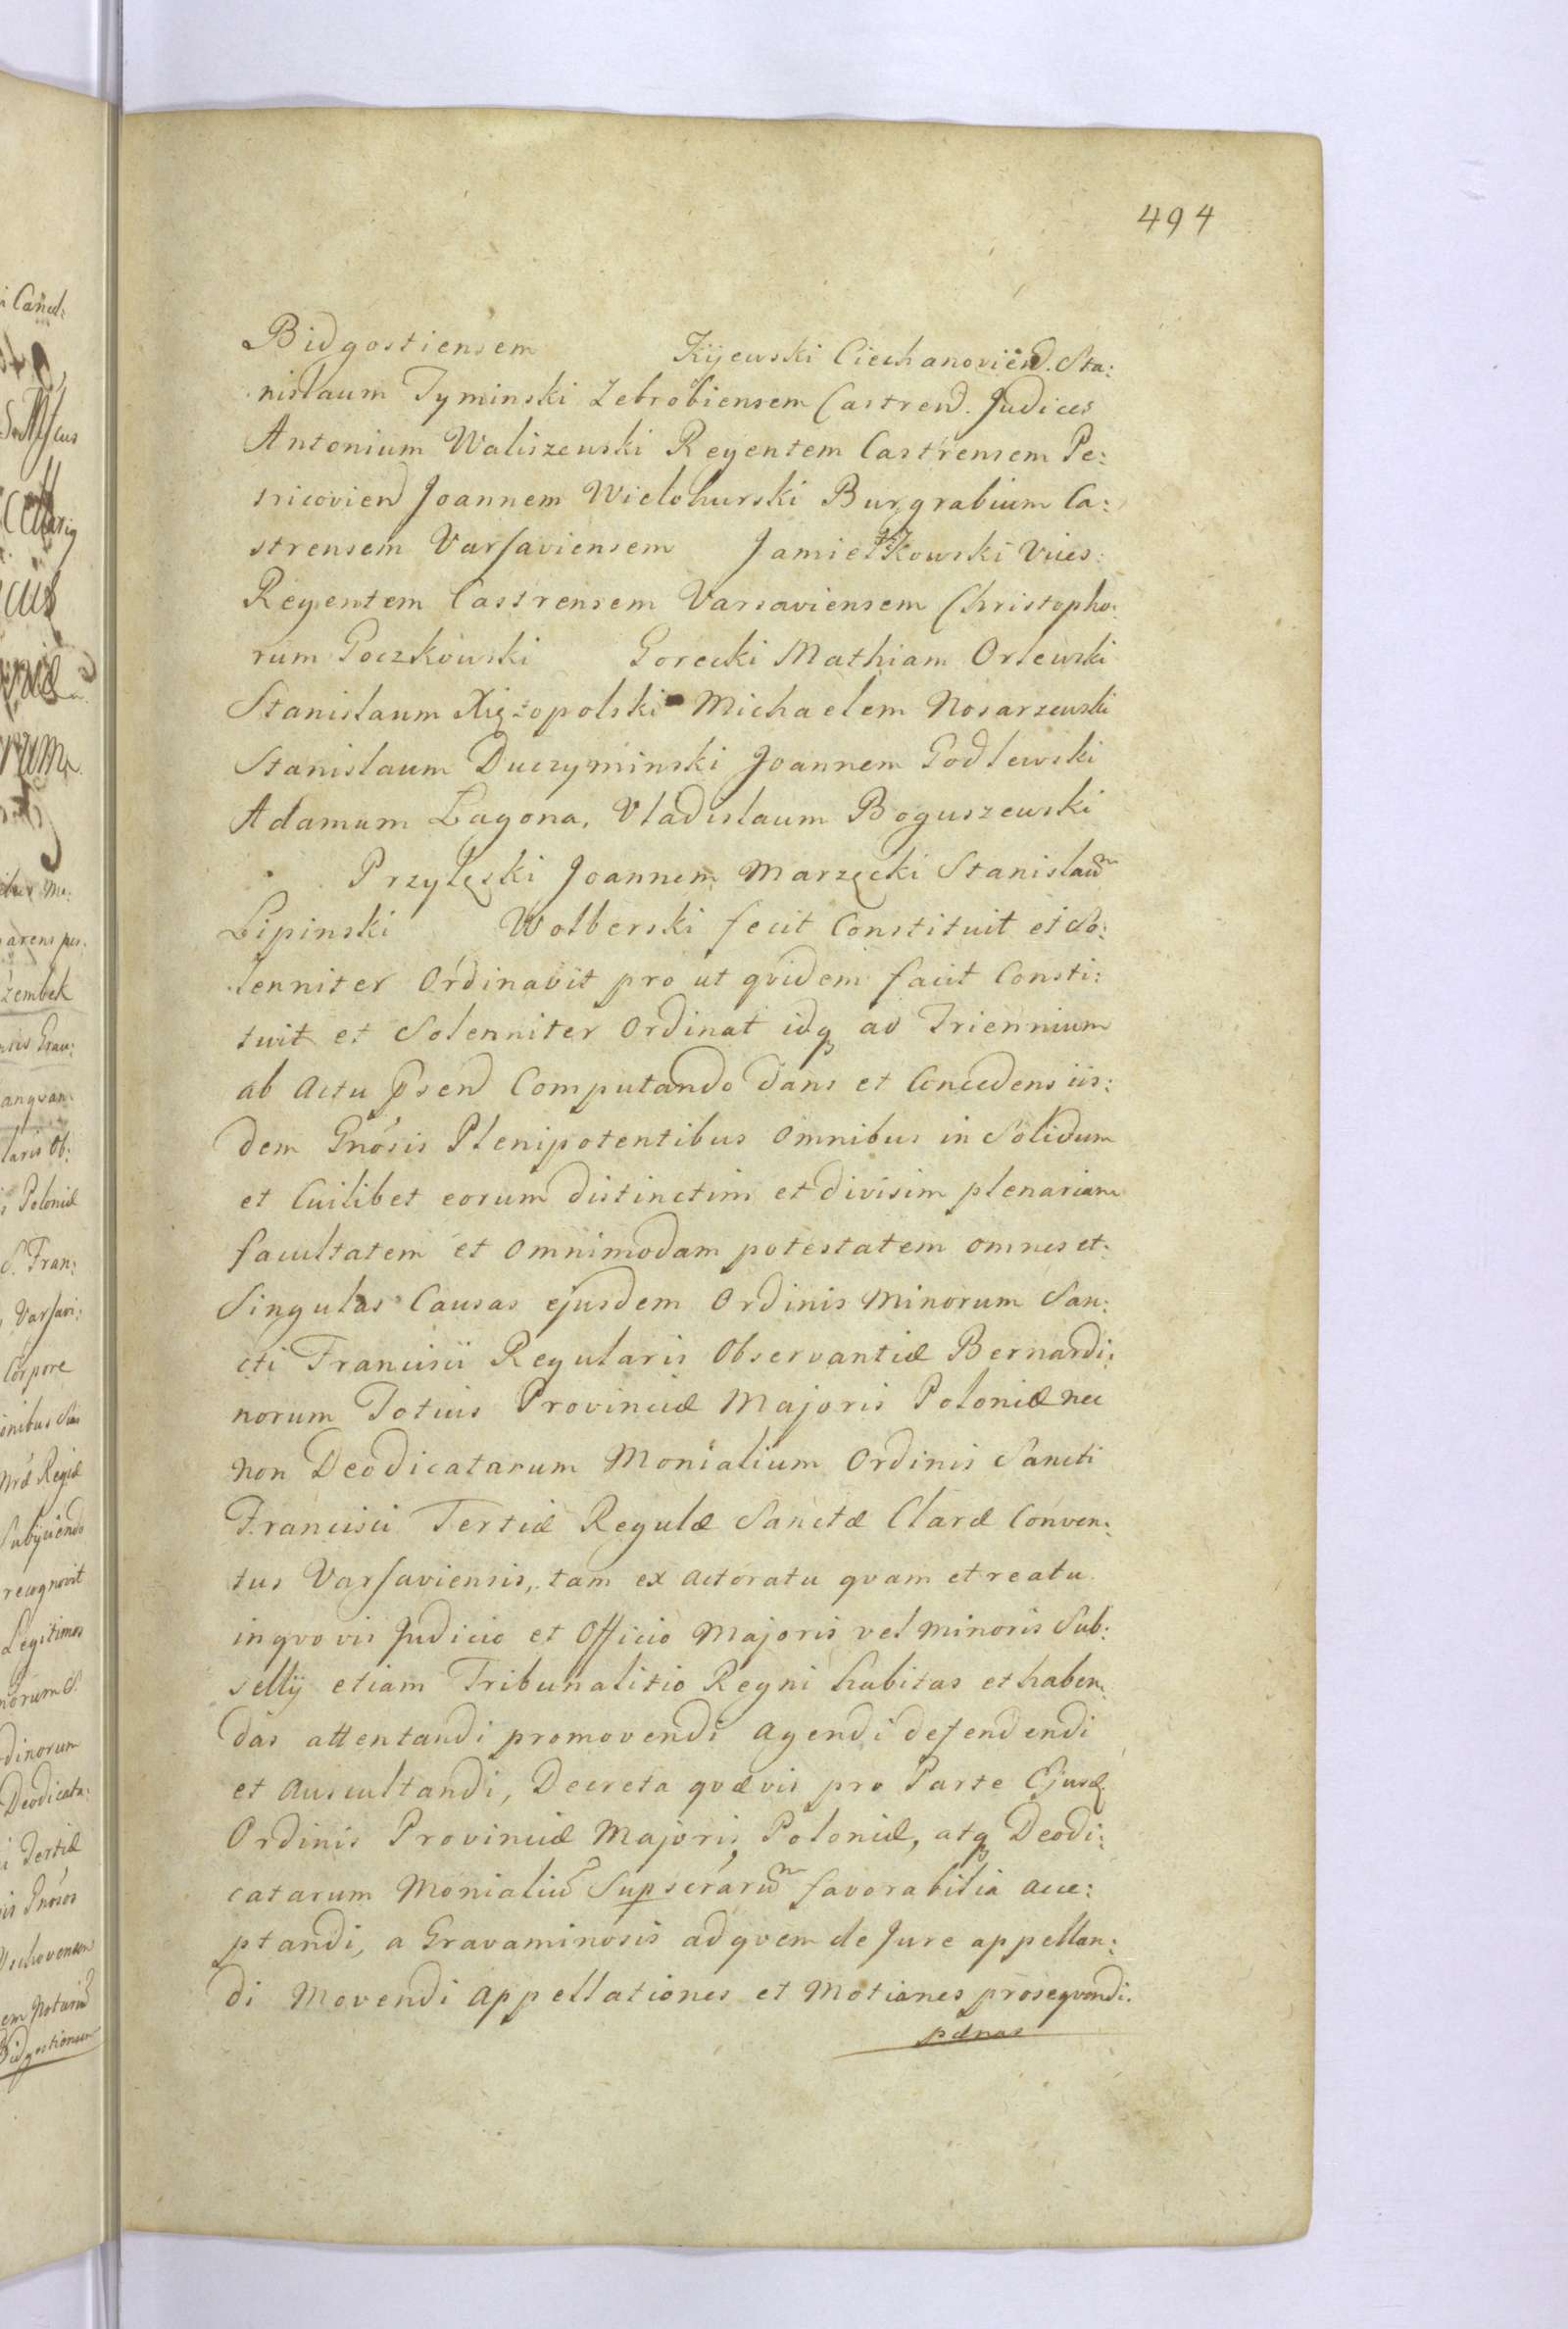 494
Bidgostiensem Kijewski Ciechanovien̅d. Sta:
nislaum Tyminski Zebrobiensem Castrend. Judices
Antonium Waliszewski Regentem Castrensem Pe:
tricoviend Joannem Wielohurski Burgrabium Ca:
strensem Varsaviensem Jamiełkowski Vices:
Regentem Castrensem Varsaviensem Christopho:
rum Poczkowski Gorecki Mathiam Orlewski
Stanislaum Xiężopolski Michaelem Nosarzewski
Stanislaum Duczyminski Joannem Godlewski
Adamum Łagona, Vladislaum Boguszewski
Przyłęski Joannem Marzęcki Stanislau͂m
Lipinski Wolberski fecit Constituit et So:
lenniter Ordinavit pro ut qvidem facit Consti:
tuit et Solenniter Ordinat idq ad Triennium
ab Actu Psend Computando dans et Concedens iis:
dem Gnósis Plenipotentibus Omnibus in Solidum
et Cuilibet eorum distinctim et divisim plenariam
facultatem et Omnimodam potestatem omnes et:
Singulas Causas ejusdem Ordinis Minorum San:
cti Francisci Regularis Observantiæ Bernardi:
norum Totius Provinciæ Majoris Poloniæ nec
non Deodicatarum Monialium Ordinis Sancti
Francisci Tertiæ Regulæ Sanctæ Claræ Conven:
tus Varsaviensis, tam ex Actoratu qvam et reatu
in qvovis Judicio et Officio Majoris vel minoris Sub:
sellij etiam Tribunalitio Regni habitas et haben:
das attentandi promovendi agendi defendendi
et Auscultandi, Decreta qvævis pro Parte Ejusd
Ordinis Provinciæ Majoris Poloniæ, atq Deodi:
catarum Monialiu͂ Supscráru͂m favorabilia acce:
ptandi, a Gravaminosis adqvem de Jure appellan:
di Movendi Appellationes et Motiones proseqvendi.
pænas